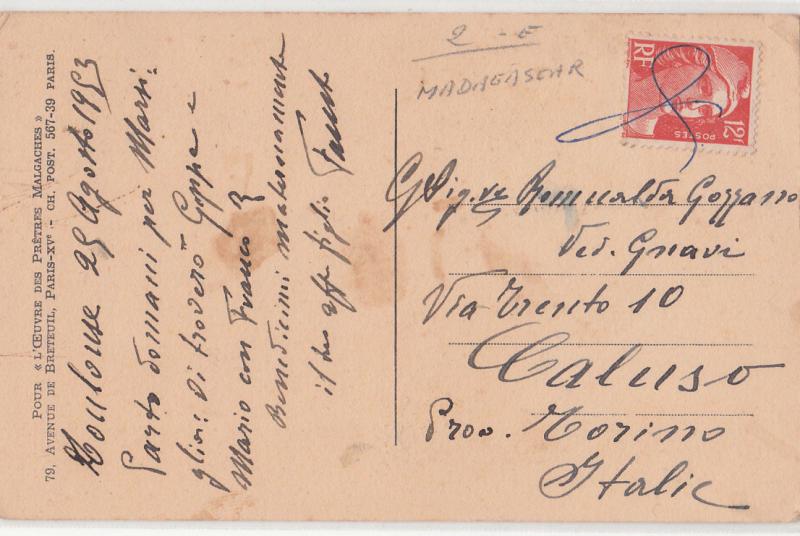 POUR « L'ŒUVRE DES PRÊTRES MALGACHES »
79, AVENUE DE BRETEUIL, PARIS-XVe - CH. POST. 567-39 PARIS.
Toulouse 25 Agosto 1953
Parto domani per Marsi:
glia: di troverò Geppe e
Mario con Franco
Benedicimi maternamente
il tuo aff figlio Faust
2 - E
MADAGASCAR
RF
12F
POSTES
Sig.ra Romualda Gozzano
Ved. Gnavi
Via Trento 10
Caluso
Prov. Torino
Italie